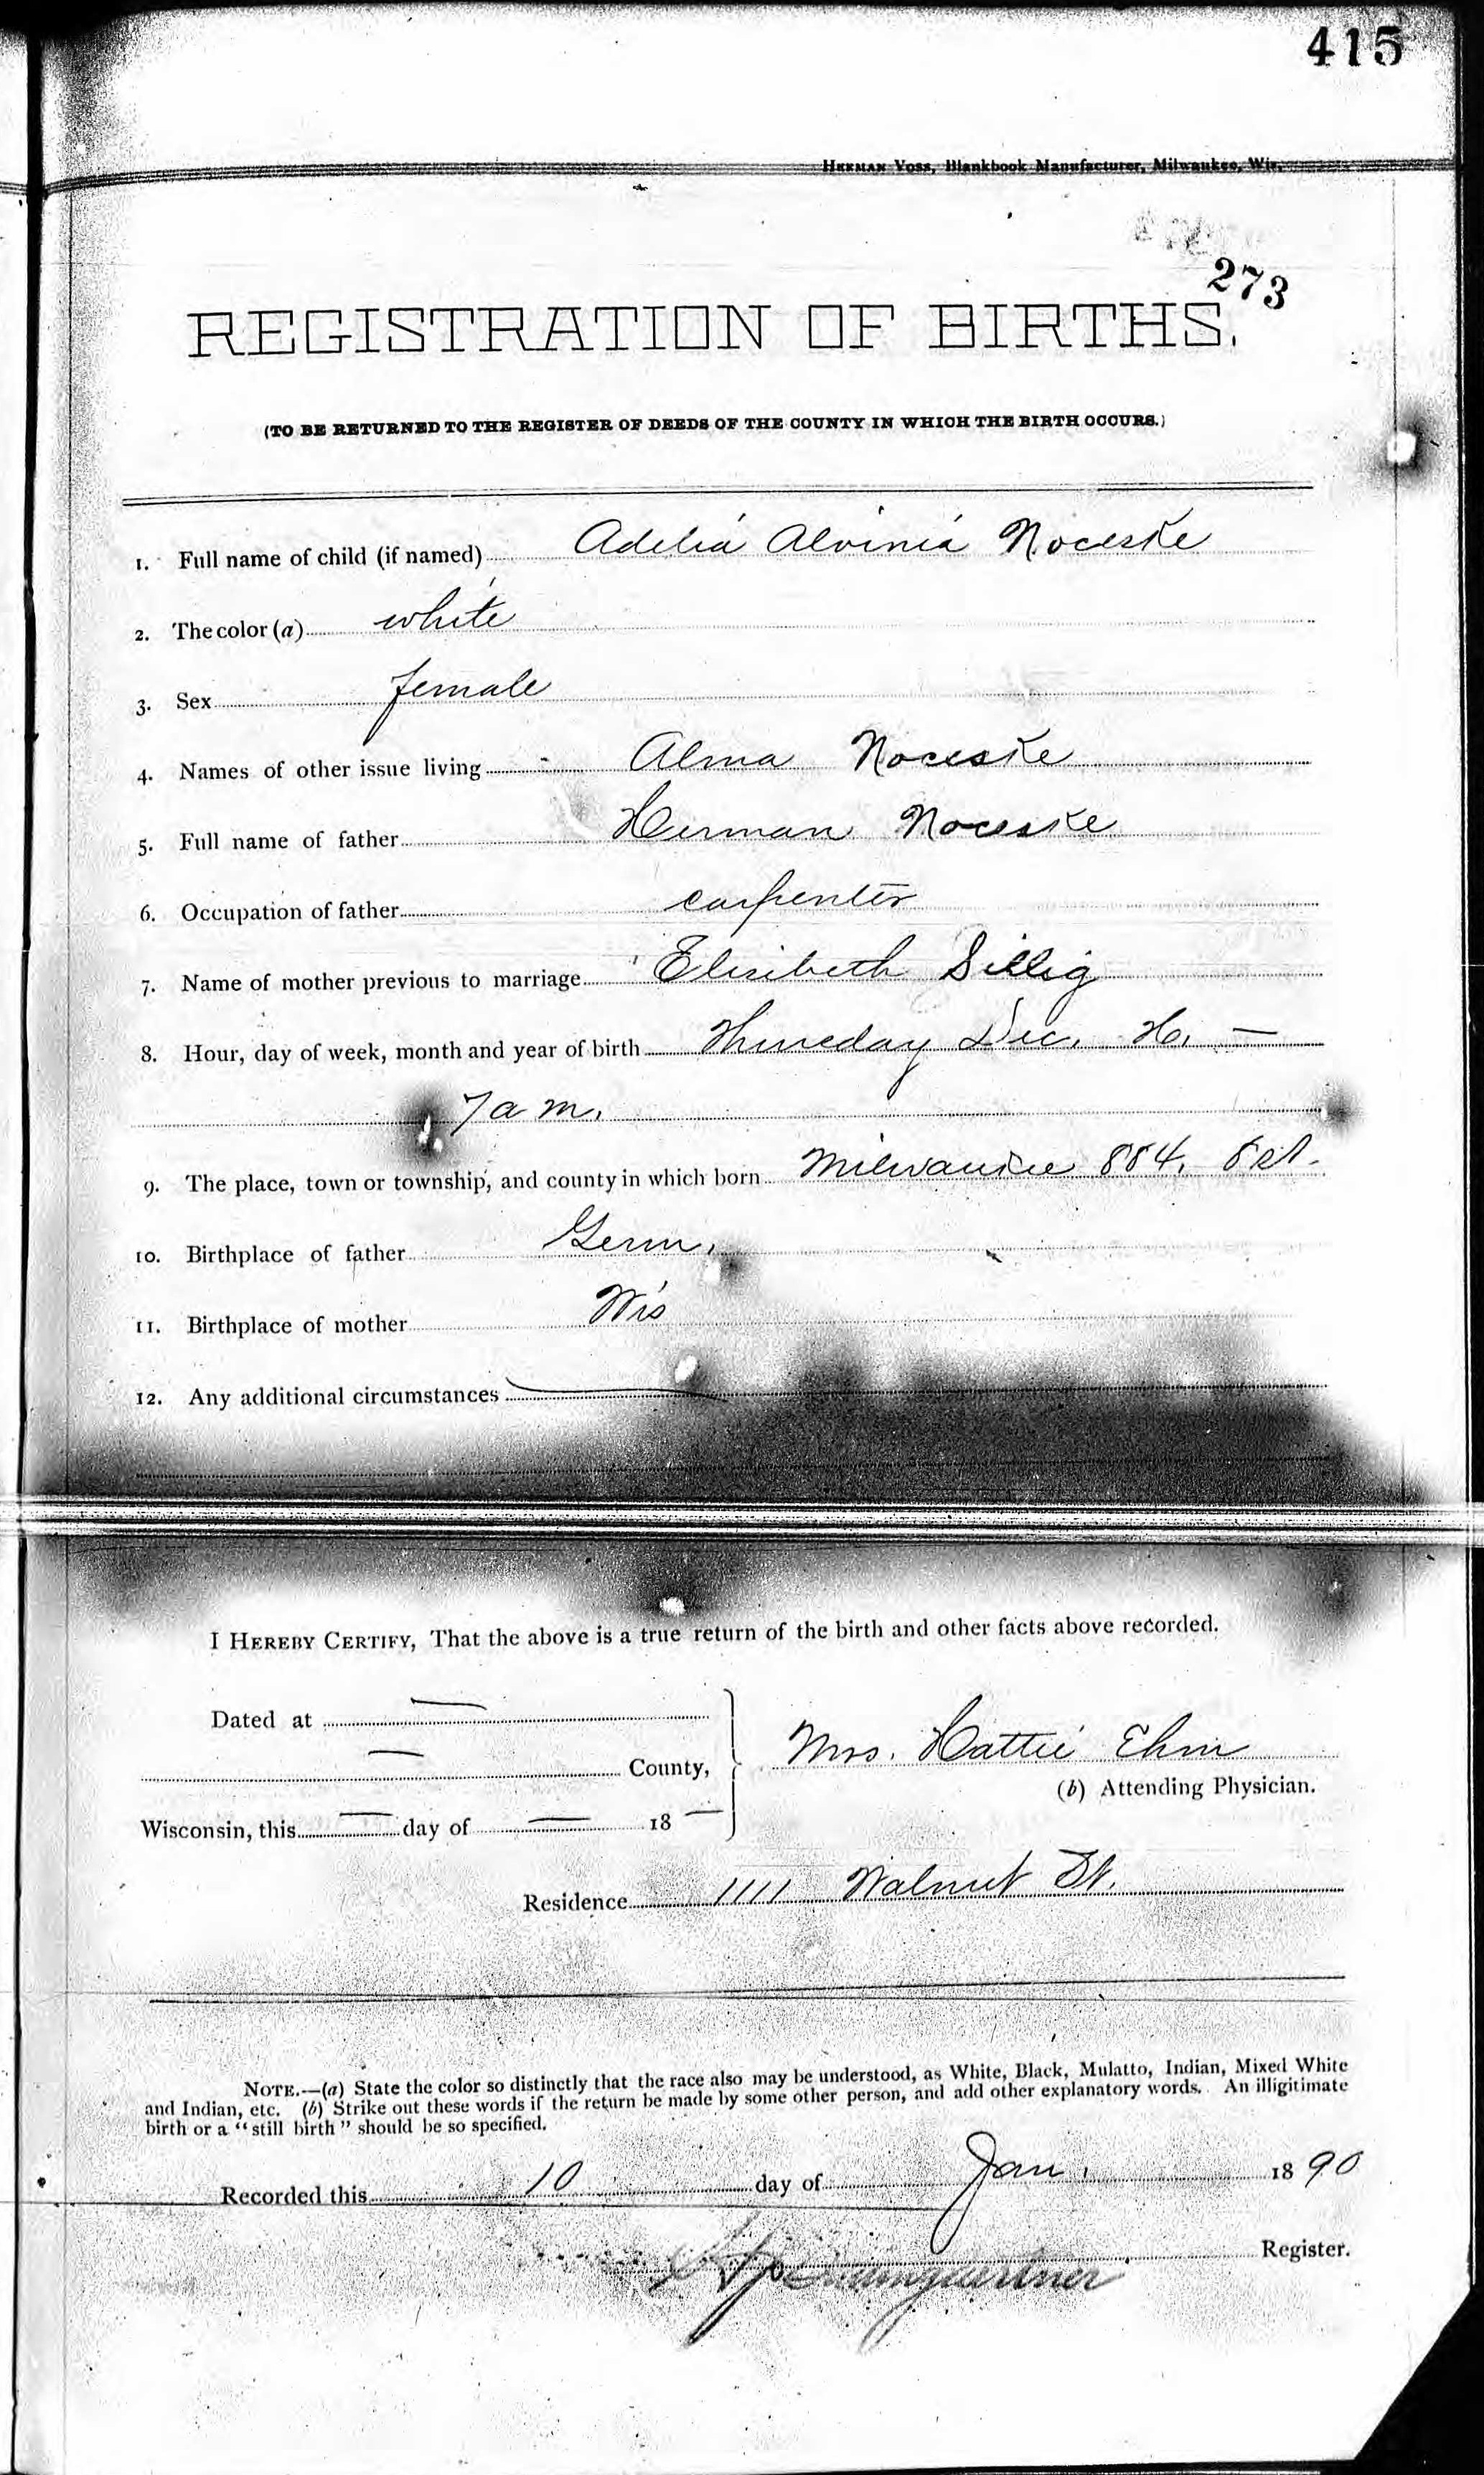 415
HERMAN VOSS, Blankbook Manufacturer, Milwaukee, Wis.
273
REGISTRATION OF BIRTHS.
(TO BE RETURNED TO THE REGISTER OF DEEDS OF THE COUNTY IN WHICH THE BIRTH OCCURS.)
1. Full name of child (if named) Adelia Alvinia Noceske
2. The color (a) white
3. Sex female
4. Names of other issue living Alma Noceske
5. Full name of father Herman Noceske
6. Occupation of father carpenter
7. Name of mother previous to marriage Elisibeth Sillig
8. Hour, day of week, month and year of birth Thursday Dec. 26. —
7 a m.
9. The place, town or township, and county in which born Milwaukee 884.
10. Birthplace of father Germ.
11. Birthplace of mother Wis
12. Any additional circumstances
I HEREBY CERTIFY, That the above is a true return of the birth and other facts above recorded.
Dated at —
— County,
Mrs. Hattie Ehm
(b) Attending Physician.
Wisconsin, this — day of — 18 —
Residence 1111 Walnut St.
NOTE.—(a) State the color so distinctly that the race also may be understood, as White, Black, Mulatto, Indian, Mixed White
and Indian, etc. (b) Strike out these words if the return be made by some other person, and add other explanatory words. An illigitimate
birth or a "still birth" should be so specified.
Recorded this 10 day of Jan. 1890
Register.
Baumgaertner